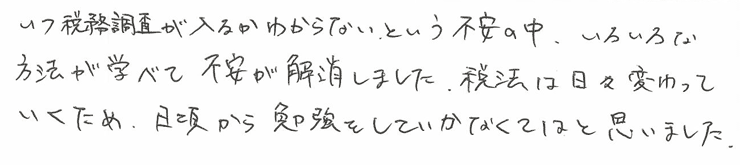 いつ税務調査が入るかわからないという不安の中、いろいろな
方法が学べて不安が解消しました。税法は日々変わって
いくため、日頃から勉強をしていかなくてはと思いました。